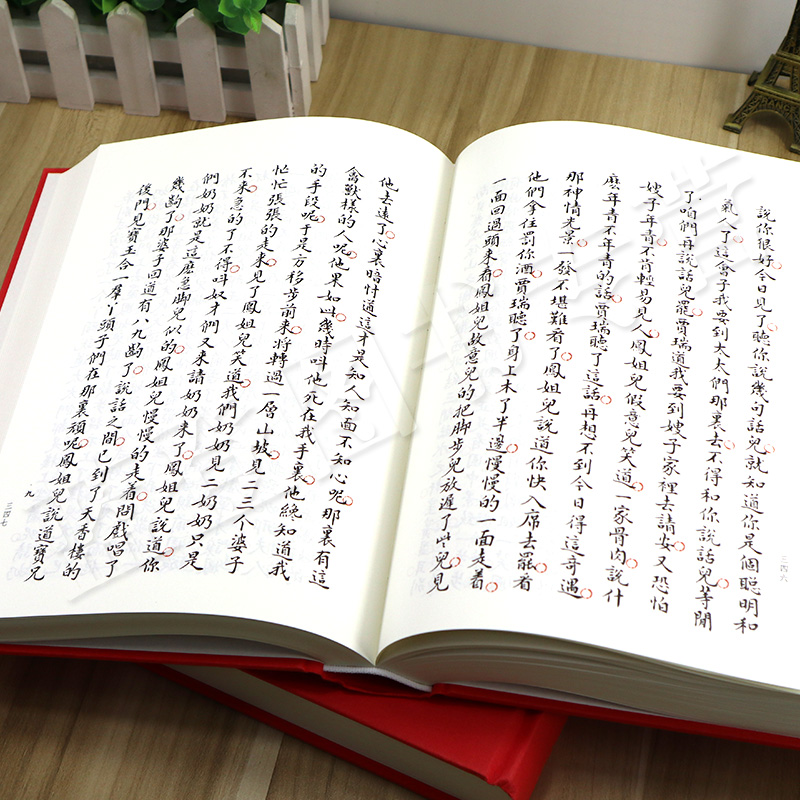 說你很好今日見了聽你說幾句話兒就知道你是個聰明和
氣人了這會子我要到太太們那裏去不得和你說話兒等閒
了咱們再說話兒罷賈瑞道我要到嫂子家裡去請安又恐怕
嫂子年青不肯輕易見人鳳姐兒假意兒笑道一家骨肉說什
麼年青不年青的話賈瑞聽了這話再想不到今日得這奇遇
那神情光景一發不堪難看了鳳姐兒說道你快入席去罷看
他們拿住罰你酒賈瑞聽了身上木了半邊慢慢的一面走着
一面回過頭來看鳳姐兒故意兒的把脚步兒放遲了些兒見
三四六
他去遠了心裏暗忖道這才是知人知面不知心呢那裏有這
禽獸樣的人呢他果如此幾時叫他死在我手裏他纔知道我
的手段呢于是方移步前來將轉過一層山坡見二三个婆子
忙忙張張的走來見了鳳姐兒笑道我們奶奶見二奶奶只是
不來急的了不得叫奴才們又來請奶奶來了鳳姐兒說道你
們奶奶就是這麽急脚兒似的鳳姐兒慢慢的走着問戲唱了
幾齣了那婆子回道有八九齣了說話之間已到了天香樓的
後門見寶玉合一羣丫頭子們在那裏頑呢鳳姐兒說道寶兄
三四七